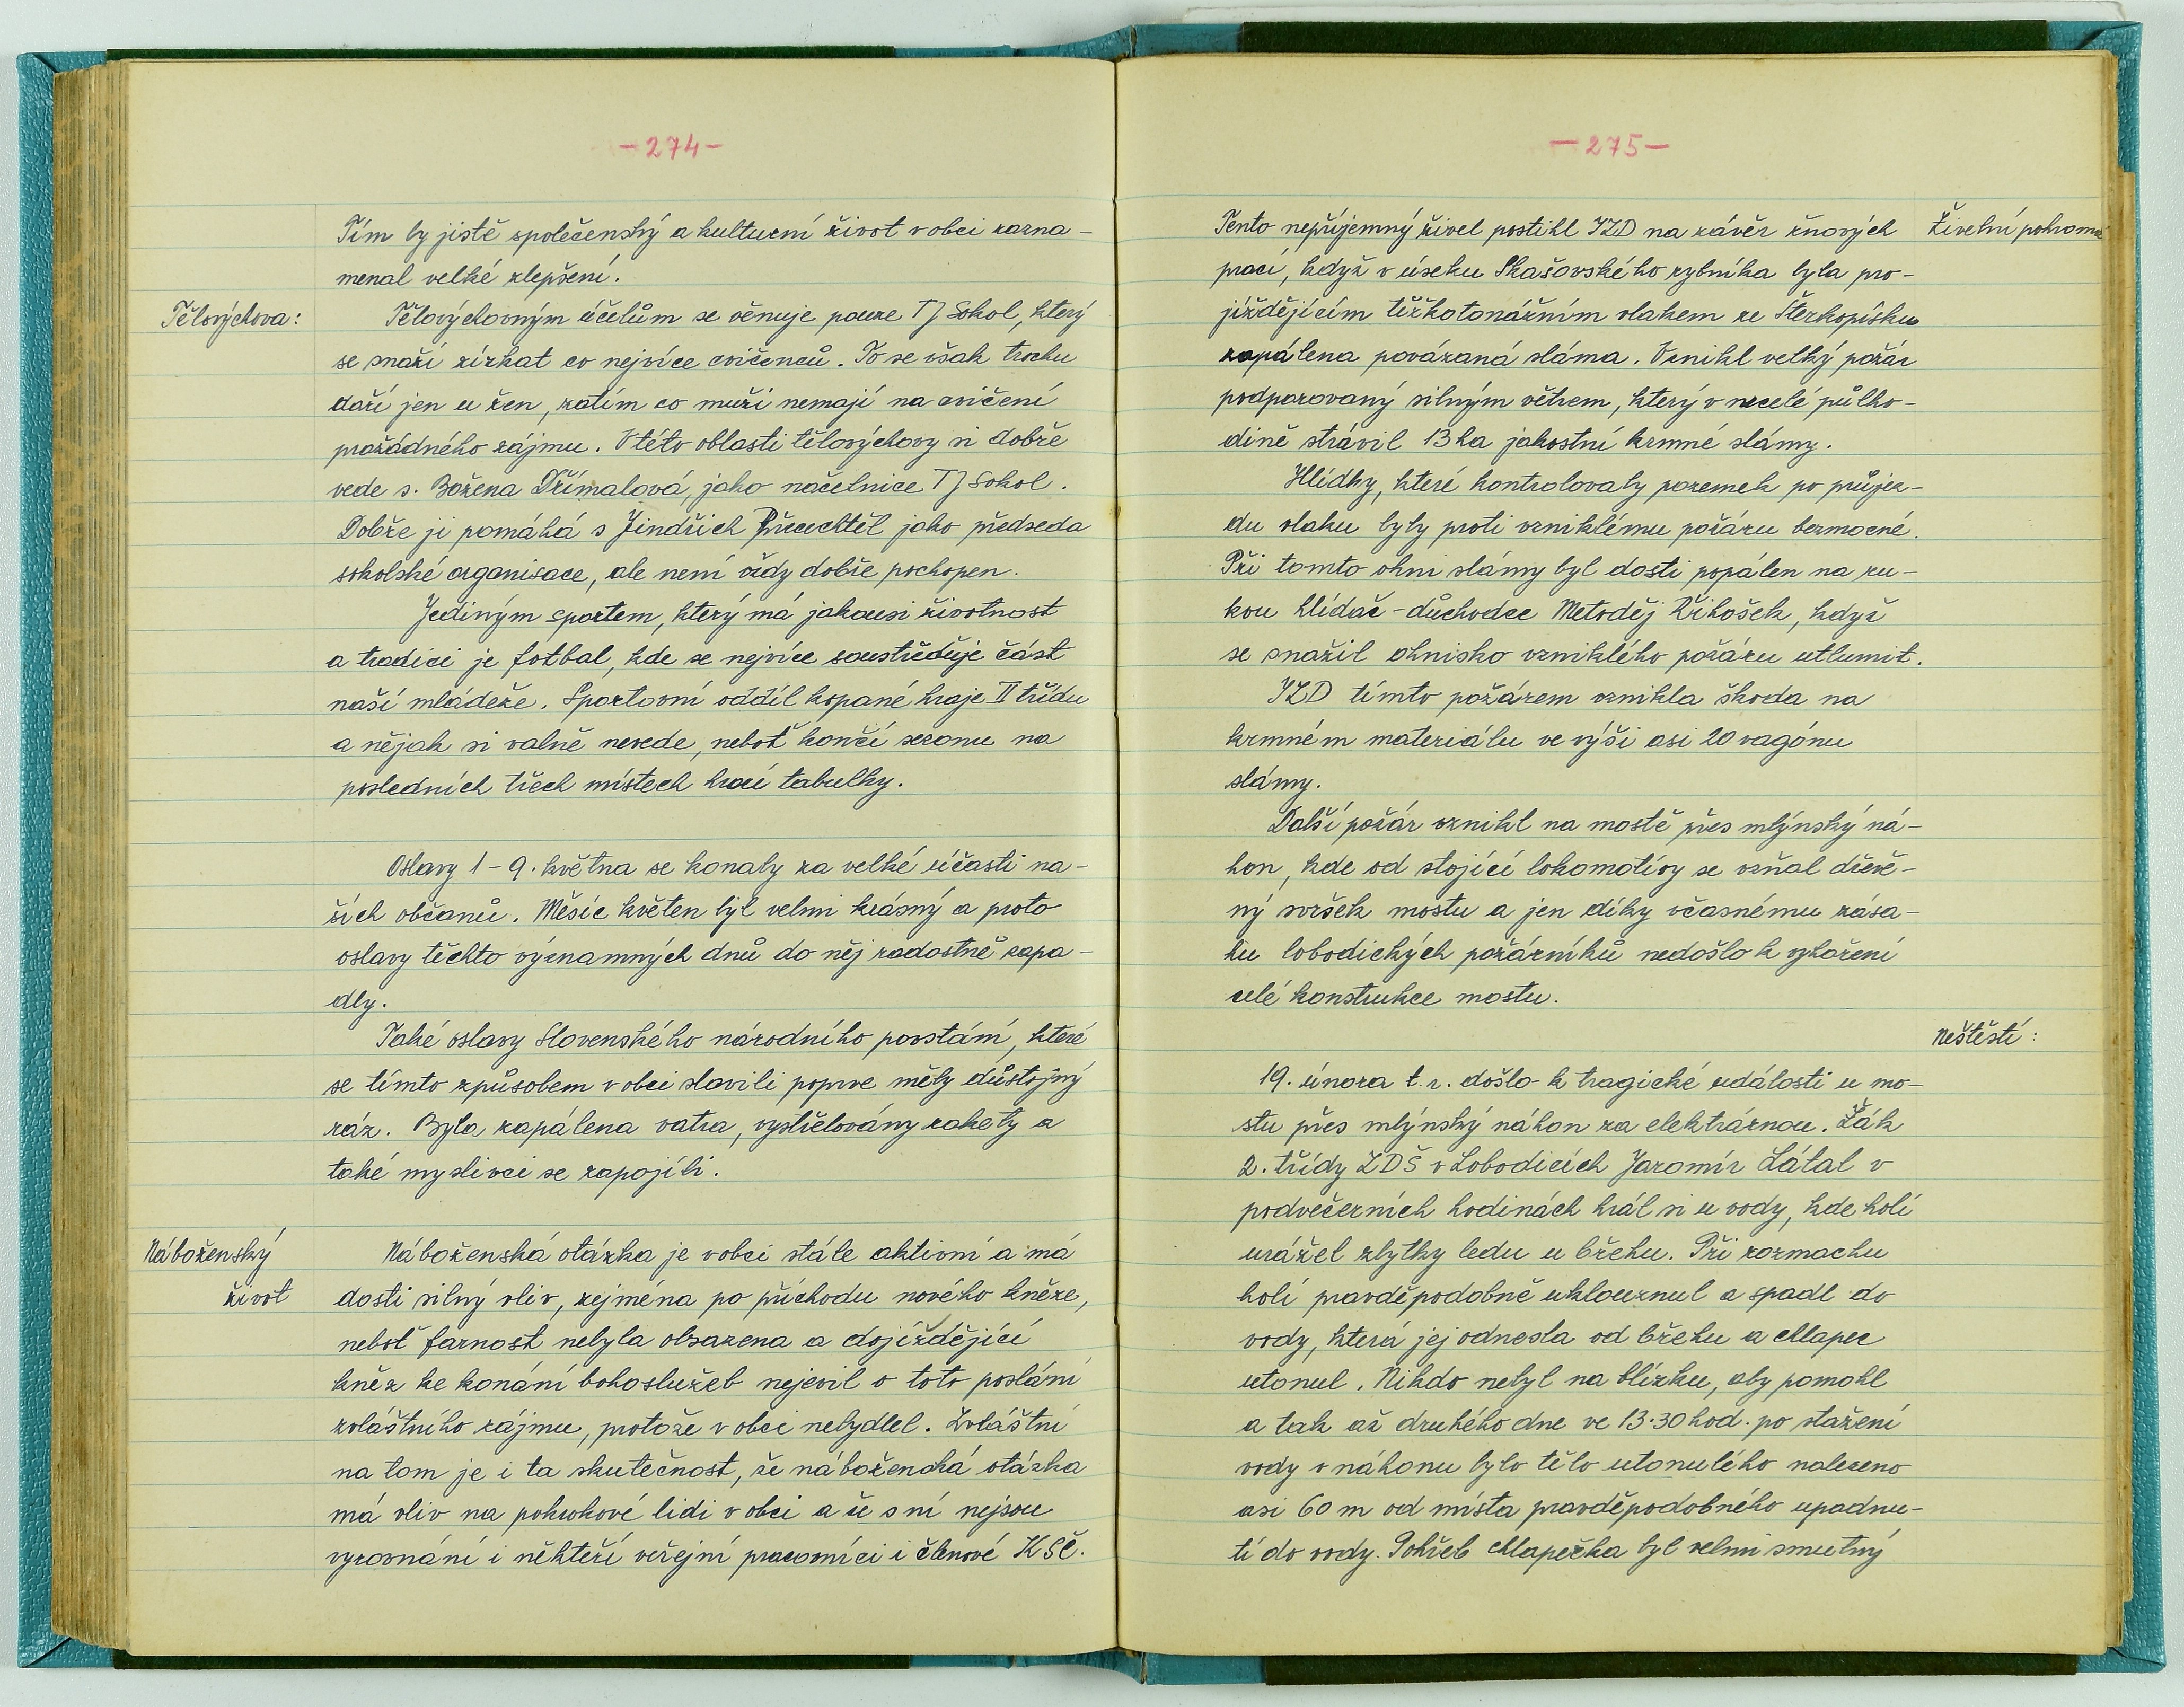 -274-
Tím by jistě společenský a kulturní život v obci zazna-
menal velké zlepšení.
Tělovýchova:
Tělovýchovným účelům se věnuje pouze TJ Sokol, který
se snaží získat co nejvíce cvičenců. To se však trochu
daří jen u žen, zatím co muži nemají na cvičení
pražádného zájmu. V této oblasti tělovýchovy si dobře
vede s. Božena Dřímalová, jako náčelnice TJ Sokol.
Dobře jí pomáhá s Jindřich jako předseda
sokolské organisace, ale není vždy dobře pochopen.
Jediným sportem, který má jakousi životnost
a tradici je fotbal, kde se nejvíce soustřeďuje část
naší mládeže. Sportovní oddíl kopané hraje II třídu
a nějak si valně nevede, neboť končí sezonu na
posledních třech místech hrací tabulky.
Oslavy 1-9. května se konaly za velké účasti na-
šich občanů. Měsíc květen byl velmi krásný a proto
oslavy těchto významných dnů do něj radostně zapa-
dly.
Také oslavy Slovenského národního povstání, které
se tímto způsobem v obci slavili poprve měly důstojný
ráz. Byla zapálena vatra, vystřelovány rakety a
také myslivci se zapojili.
Náboženský
život
Náboženská otázka je v obci stále aktivní a má
dosti silný vliv, zejména po příchodu nového kněze,
neboť farnost nebyla obsazena a dojíždějící
kněz ke konání bohoslužeb nejevil o toto poslání
zvláštního zájmu, protože v obci nebydlel. Zvláštní
na tom je i ta skutečnost, že náboženská otázka
má vliv na pokrokové lidi v obci a že s ní nejsou
vyrovnání i někteří veřejní pracovníci i členové KSČ.
-275-
Živelní pohroma
Tento nepříjemný živel postihl JZD na závěr žňových
prací, když v úseku Skašovského rybníka byla pro-
jíždějícím těžkotonážním vlakem ze Štěrkopísku
zapálena povázaná sláma. Vznikl velký požár
podporovaný silným větrem, který v necelé půlho-
dině strávil 13 ha jakostní krmné slámy.
Hlídky, které kontrolovaly pozemek po průjez-
du vlaku byly proti vzniklému požáru bezmocné.
Při tomto ohni slámy byl dosti popálen na ru-
kou hlídač-důchodce Metoděj Řihošek, když
se snažil ohnisko vzniklého požáru utlumit.
JZD tímto požárem vznikla škoda na
krmném materiálu ve výši asi 20 vagónu
slámy.
Další požár vznikl na mostě přes mlýnský ná-
hon, kde od stojící lokomotivy se vzňal dřevě-
ný svršek mostu a jen díky včasnému zása-
hu lobodických požárníků nedošlo k vyhoření
celé konstrukce mostu.
Neštěstí:
19. února t.r. došlo k tragické události u mo-
stu přes mlýnský náhon za elektrárnou. Žák
2. třídy ZDŠ v Lobodicích Jaromír Látal v
podvečerních hodinách hrál si u vody, kde holí
urážel zbytky ledu u břehu. Při rozmachu
holí pravděpodobně uklouznul a spadl do
vody, která jej odnesla od břehu a chlapec
utonul. Nikdo nebyl na blízku, aby pomohl
a tak až druhého dne ve 13.30 hod. po stažení
vody v náhonu bylo tělo utonulého nalezeno
asi 60 m od místa pravděpodobného upadnu-
tí do vody. Pohřeb chlapečka byl velmi smutný